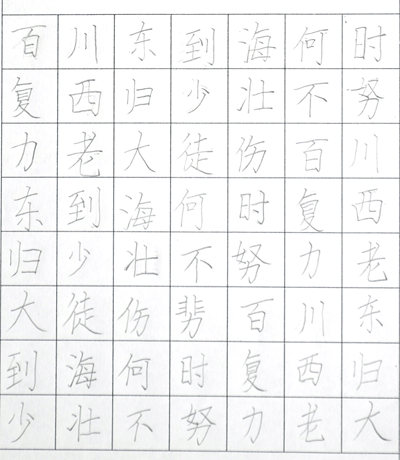 百川东到海何时
复西归少壮不努
力老大徒伤百川
东到海何时复西
归少壮不努力老
大徒伤百川东
到海何时复西归
少壮不努力老大